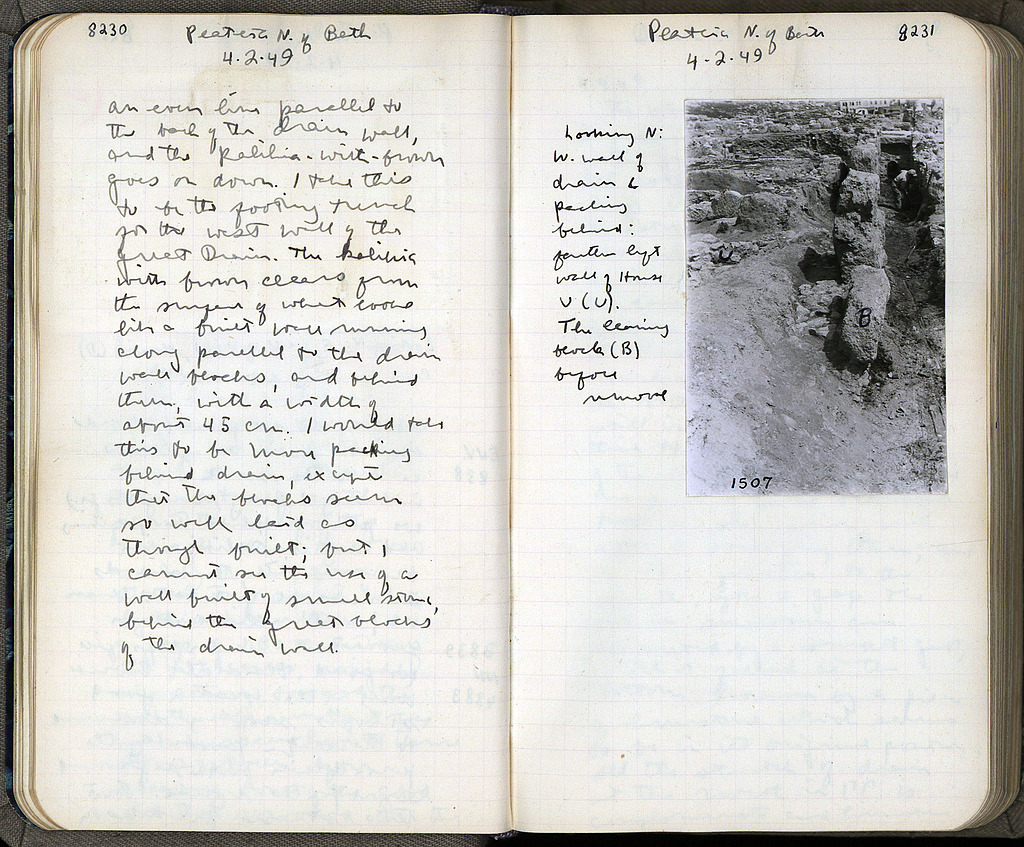 8230
Plateia N. of Bath
4.2.49
an even line parallel to
the back of the drain wall,
and the kalikia-with-brown
goes on down. I take this
to be the footing trench
for the west wall of the
Great Drain. The kalikia
with brown clears from
the surface of what looks
like a built wall running
along parallel to the drain
wall blocks, and behind
them, with a width of
about 45 cm. I would take
this to be more packing
behind drain, except
that the blocks seem
so well laid as
though built; but I
cannot see the use of a
wall built of small stones,
behind the great blocks
of the drain wall.
Plateia N. of Bath
8231
4.2.49
Looking N:
W. wall of
drain &
packing
behind:
farther left
wall of House
U (U).
The leaning
block (B)
before
removal
U
B
1507